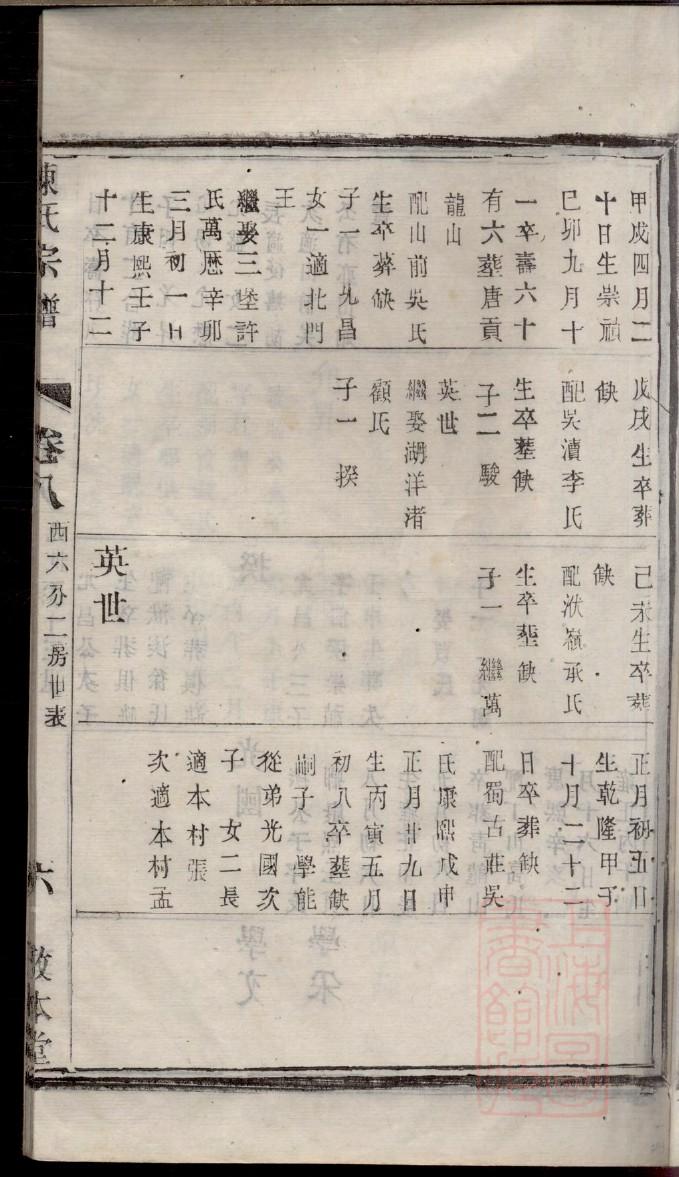 甲戍四月二
十日生崇禎
己卯九月十
一卒壽六十
有六塟唐貢
龍山
配山前吳氏
生卒葬缺
子一 九昌
女一適北門
王
繼娶三塟許
氏萬厯辛卯
三月初一日
生康熙壬子
十二月十二
戊戌生卒葬
缺
配吳瀆李氏
生卒塟缺
子二 駿
英世
繼娶湖洋渚
顧氏
子一 揆
己未生卒葬
缺
配洑嶺承氏
生卒塟缺
子一 繼萬
英世
正月初五日
生乾隆甲子
十月二十二
日卒葬缺
配蜀古莊吳
氏康熙戊申
正月廿九日
生丙寅五月
初八卒塟缺
嗣子 學能
從弟光國次
子 女二長
適本村張
次適本村孟
陳氏宗譜
卷八
西六分二房世表
六
敦本堂
上海圖書館藏